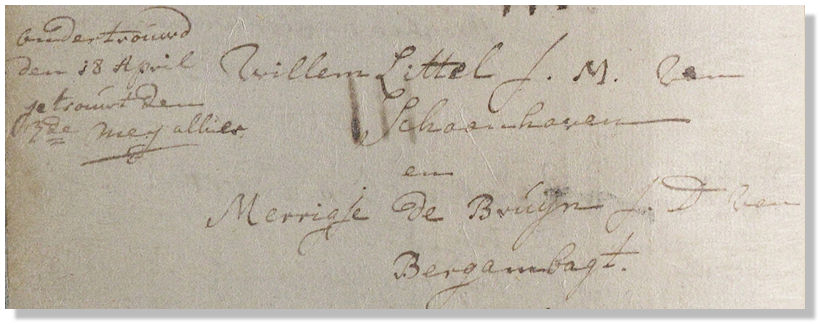 ondertrouwd
den 18 April
getrouwt den
3de mey alhier
Willem Littel J. M. van
Schoonhoven
en
Merrigje de Bruijn J. D van
Bergambagt.